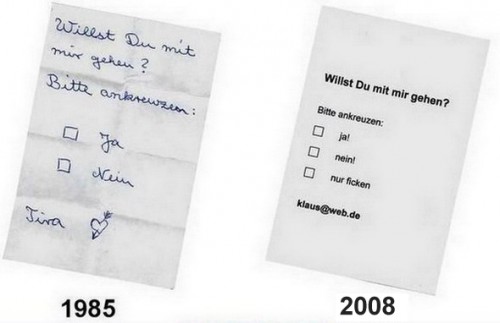 Willst Du mit
mir gehen?
Bitte ankreuzen:
Ja
Nein
Tina
1985
Willst Du mit mir gehen?
Bitte ankreuzen:
ja!
nein!
nur ficken
klaus@web.de
2008